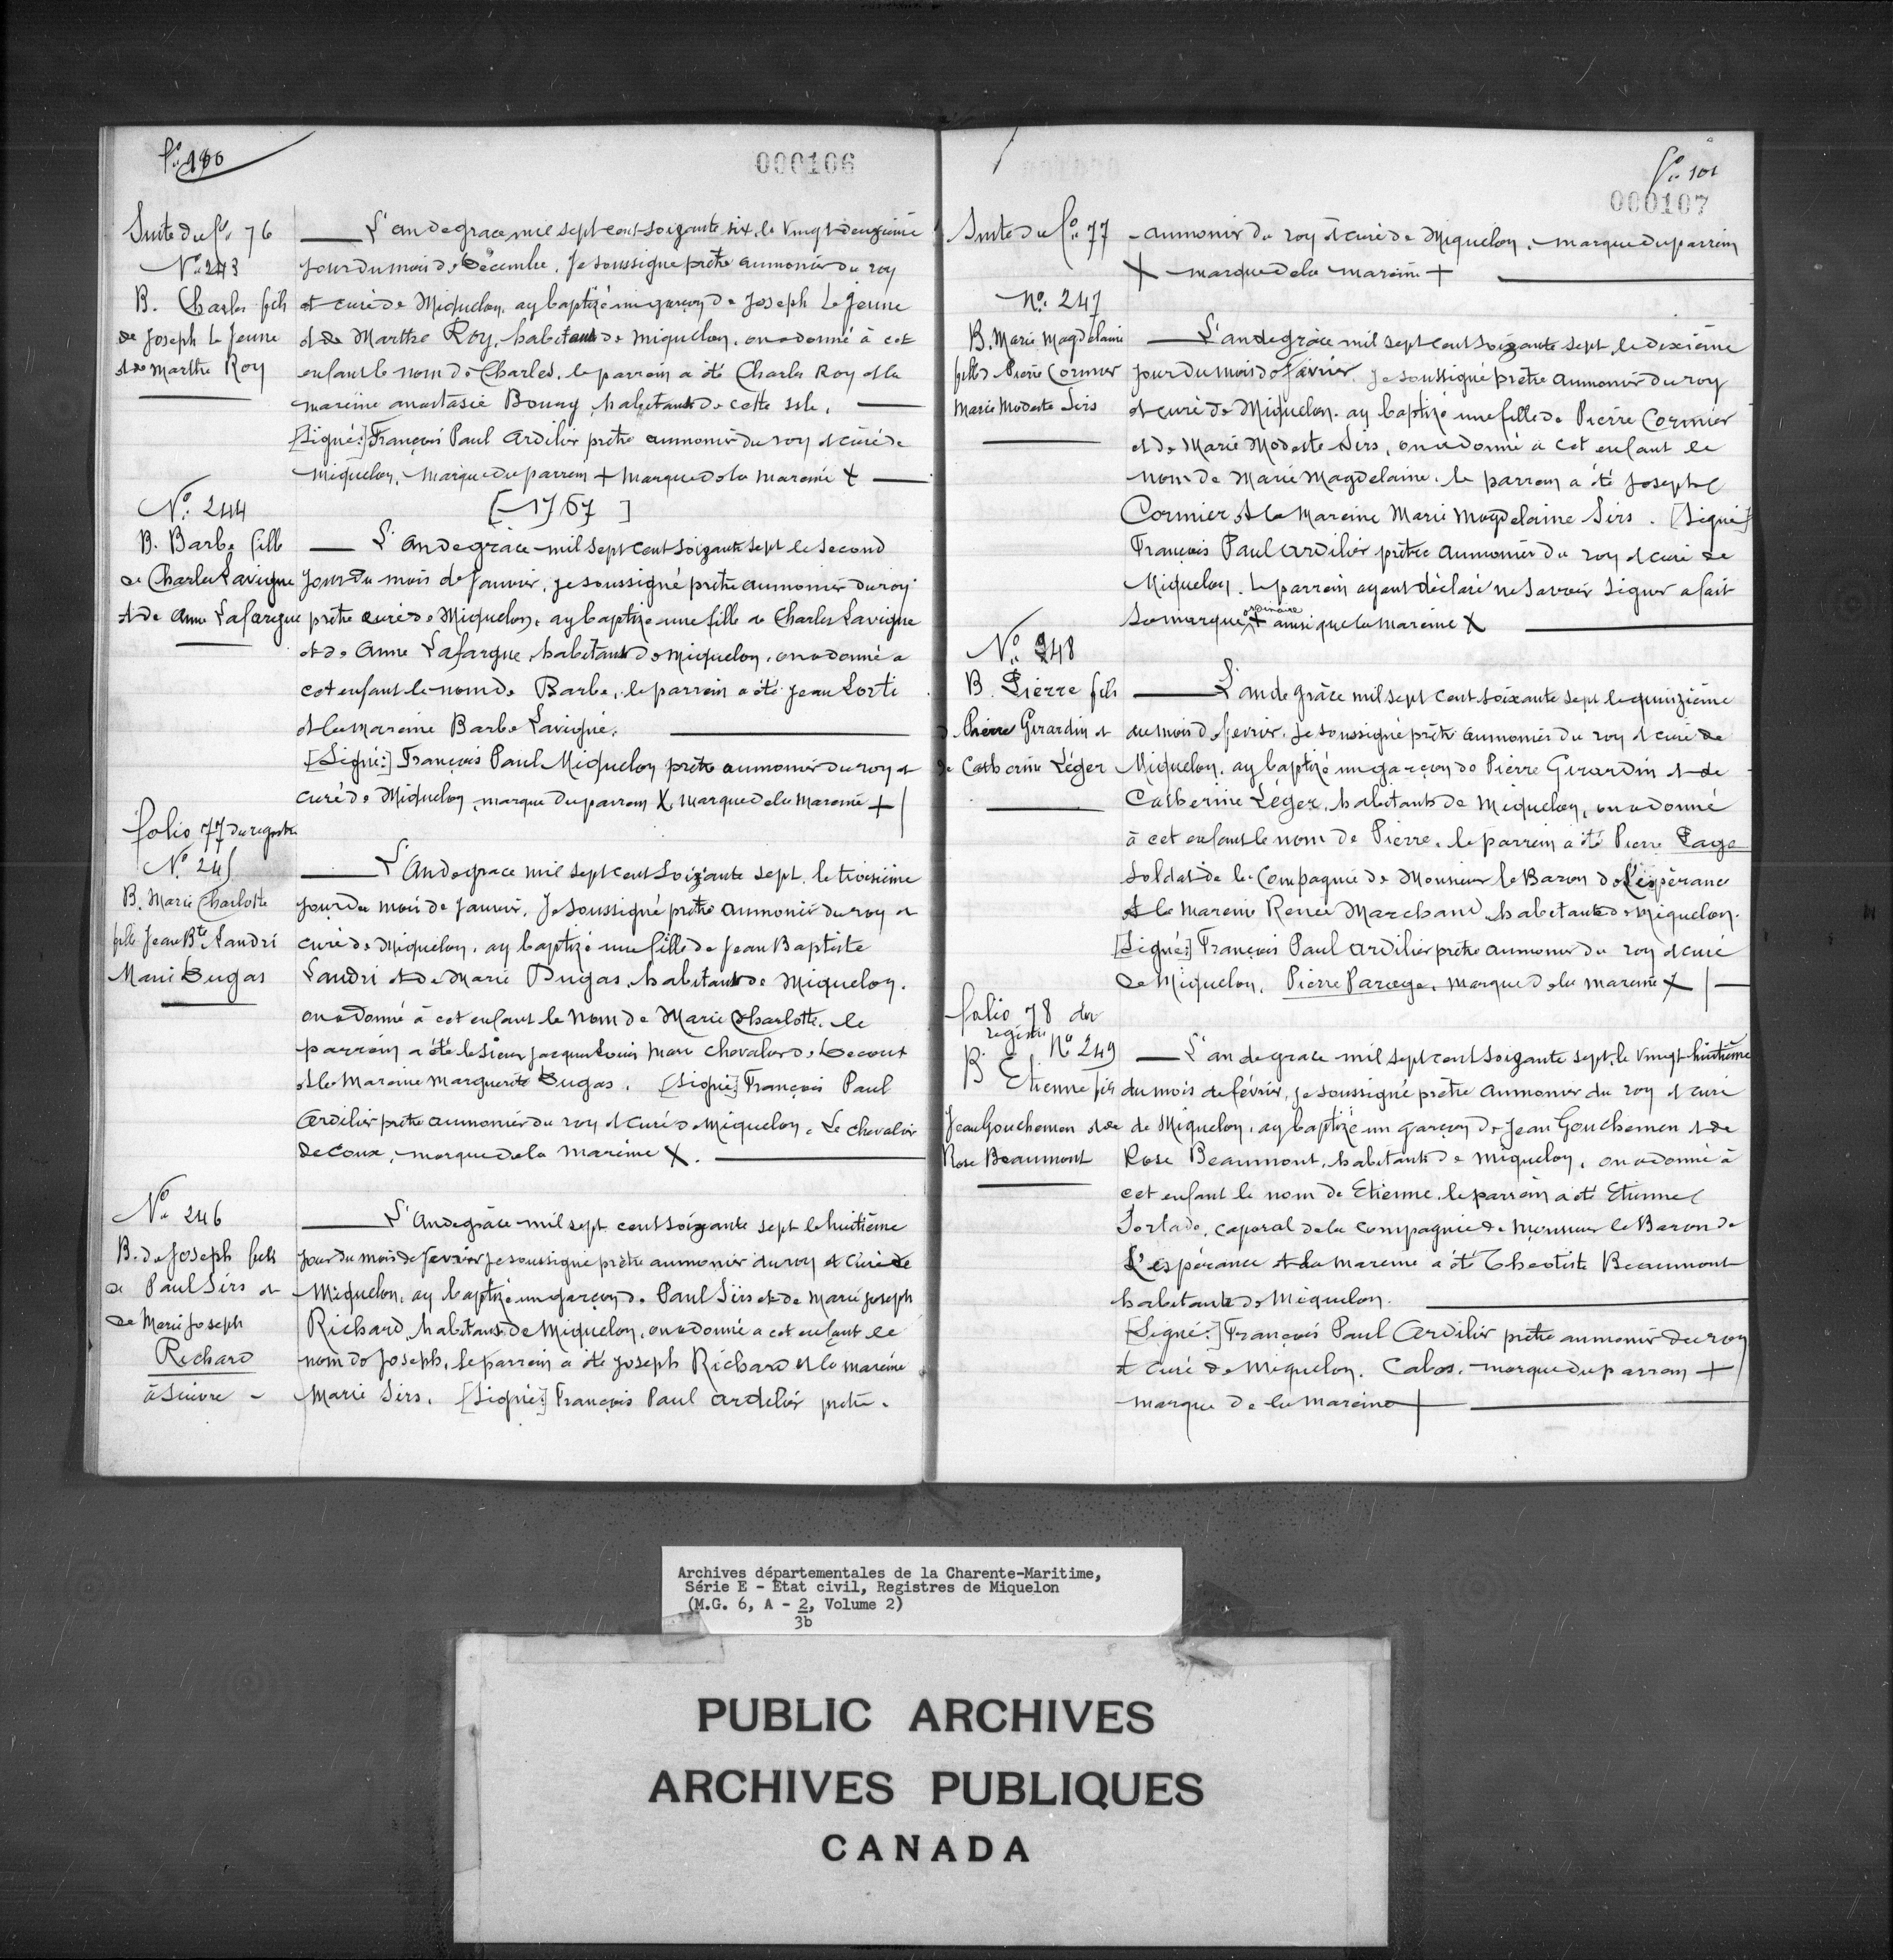 fo. 100
000106
Suite du fo. 76
No. 243
B. Charles fils
de Joseph Le Jeune
et de Marthe Roy
L'an de grace mil sept cent soixante six, le vingt deuxieme
jour du mois de Décembre. Je soussigné prêtre aumonier du roy
et curé de Miquelon, ay baptizé un garçon de Joseph Le Jeune
et de Marthe Roy, habitans de Miquelon, on a donné à cet
enfant le nom de Charles, le parrein a été Charles Roy et la
mareine anastasie Bourg habitants de cette isle.
[Signé:] François Paul Ardilier prêtre aumonier du roy et curé de
Miquelon, Marque du parrein + marque de la mareine X
[1767]
No. 244
B. Barbe fille
de Charles Lavigne
et de Anne Lafargue
L'an de grace mil sept cent soixante sept le second
jour du mois de Janvier, je soussigné prêtre aumonier du roy
prêtre curé de Miquelon, ay baptizé une fille de Charles Lavigne
et de Anne Lafargue, habitans de Miquelon, on a donné a
cet enfant le nom de Barbe, le parrein a été Jean Lorti
et la mareine Barbe Lavigne.
[Signé:] François Paul Miquelon prêtre aumonier du roy et
curé de Miquelon, marque du parrein X, marque de la mareine +
folio 77 du registre
No. 245
B. Marie Charlotte
fille Jean Bte. Landri
Marie Dugas
L'An de grace mil sept cent soixante sept, le troisième
jour du mois de Janvier. Je soussigné prêtre aumonier du roy et
curé de Miquelon, ay baptizé une fille de Jean Baptiste
Landri et de Marie Dugas, habitans de Miquelon.
on a donné à cet enfant le nom de Marie Charlotte. le
parrein a été le sieur Jacques Louis Marc chevalier de Decoux
et la Mareine Marguerite Dugas. [Signé] François Paul
Ardilier prêtre aumonier du roy et curé de Miquelon. Le chevalier
deCoux, marque de la mareine X.
No 246
B. de Joseph fils
de Paul Sirs et
de Marie Joseph
Richard
à suivre -
L'An de grâce mil sept cent soixante sept le huitième
jour du mois de fevrier je soussigné prêtre aumonier du roy et curé de
Miquelon, ay baptizé un garçon de Paul Sirs et de Marie Joseph
Richard, habitans de Miquelon, on a donné a cet enfant le
nom de Joseph. le parrein a été Joseph Richard et la mareine
Marie Sirs. [Signé:] François Paul Ardilier prêtre.
fo. 101
000107
Suite du fo. 77
aumonier du roy et curé de Miquelon, marque du parrein
X marque de la mareine +
No. 247
B. Marie Magdelaine
fille de Pierre Cormier
Marie Modeste Sirs
L'an de grâce mil sept cent soixante sept, le dixième
jour du mois de Février, je soussigné prêtre aumonier du roy
et curé de Miquelon, ay baptizé une fille de Pierre Cormier
et de Marie Modeste Sirs, on a donné a cet enfant le
nom de Marie Magdelaine. le parrein a été Joseph
Cormier et la Mareine Marie Magdelaine Sirs. [Signé]
François Paul Ardilier prêtre aumonier du roy et curé de
Miquelon. Le parrein ayant déclaré ne savoir signer a fait
sa marque ordinaire + ainsi que la mareine X
No. 248
B. Pierre fils
de Pierre Girardin et
de Catherine Léger
L'an de grâce mil sept cent soixante sept le quinzième
du mois de fevrier. Je soussigné prêtre aumonier du roy et curé de
Miquelon, ay baptizé un garçon de Pierre Girardin et de
Catherine Léger, habitants de Miquelon, on a donné
à cet enfant le nom de Pierre. le parrein a été Pierre Page
soldat de la Compagnie de Monsieur le Baron de L'espérance
et la Mareine Renée Marchand habitante de Miquelon.
[Signé:] François Paul Ardilier prêtre aumonier du roy et curé
de Miquelon, Pierre Parege, marque de la mareine X
folio 78 du
registre
No 249
B. Etienne fils
Jean Gouchemen et de
Rose Beaumont
L'an de grace mil sept cent soixante sept, le vingt huitième
du mois de février, je soussigné prêtre aumonier du roy et curé
de Miquelon, ay baptizé un garçon de Jean Gouchemen et de
Rose Beaumont, habitants de Miquelon, on a donné à
cet enfant le nom de Etienne, le parrein a été Etienne
Fortado, caporal de la compagnie de Monsieur le Baron de
L'espérance et la mareine a été Theotiste Beaumont
habitante de Miquelon.
[Signé:] François Paul Ardilier prêtre aumonier du roy
et curé de Miquelon. Cabos. marque du parrein +
marque de la mareine +
Archives départementales de la Charente-Maritime,
Série E - Etat civil, Registres de Miquelon
(M.G. 6, A - 2, Volume 2)
3b
PUBLIC ARCHIVES
ARCHIVES PUBLIQUES
CANADA